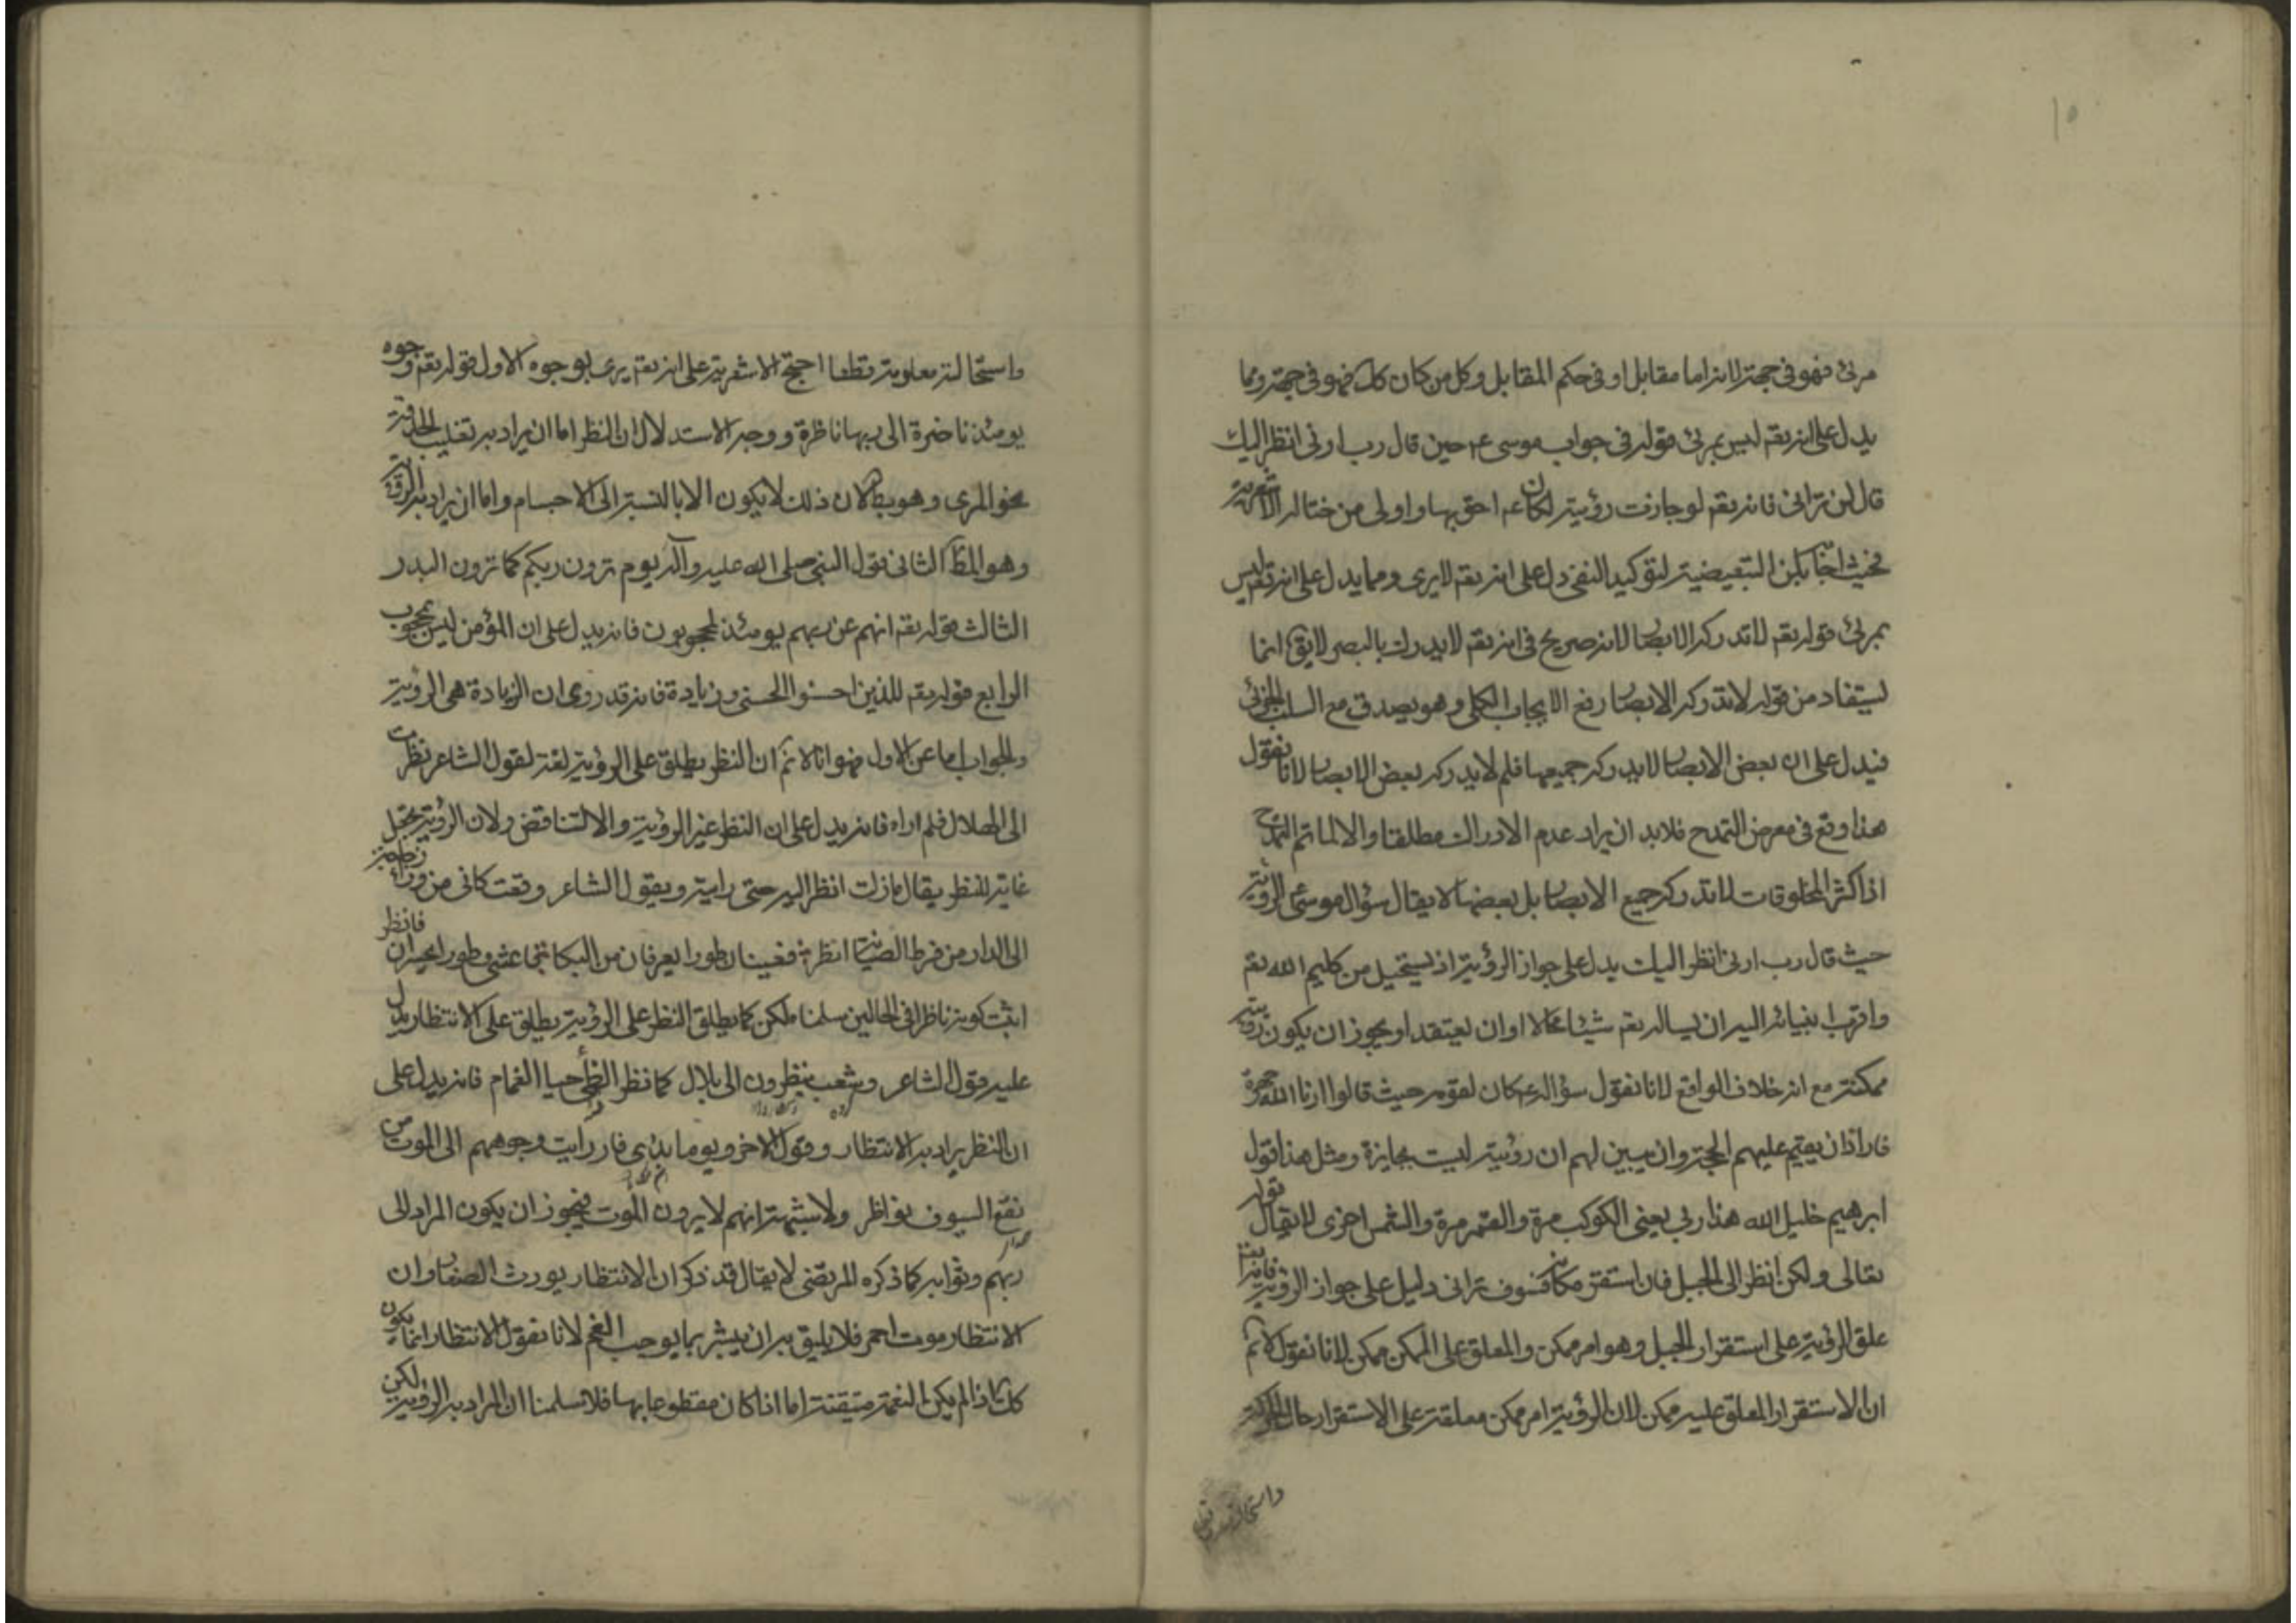 ١٥
مرئى فهو فى جهة لانه اما مقابل او فى حكم المقابل وكل من كان كك فهو فى جهة ومما
يدل على انه تعم ليس بمرئى قوله فى جواب موسى ع م حين قال رب ارنى انظر اليك
قال لن ترانى فانه تعم لو جازت رؤيته لكان ع م احق بها واولى من
فحيث اجاب بلن لتوكيد النفى دل على انه تعم لا يرى ومما يدل على انه تعم ليس
بمرئى قوله تعم لا تدركه الابصار لانه صريح فى انه تعم لا يدرك بالبصر لا يق انما
يستفاد من قوله لا تدركه الابصار رفع الايجاب الكلى وهو يصدق مع السلب الجزئى
فيدل على ان بعض الابصار لا يدركه جميعها فلم لا يدركه بعض الابصار لانا نقول
هذا وقع فى معرض التمدح فلا بد ان يراد عدم الادراك مطلقا والا لما تم التمدح
اذ اكثر المخلوقات لا تدركه جميع الابصار بل بعضها لا يقال سؤال موسى الرؤية
حيث قال رب ارنى انظر اليك يدل على جواز الرؤية اذ يستحيل من كليم الله تعم
واقرب انبيائه اليه ان يساله تعم شيئا محالا او ان يعتقد او يجوز ان يكون رؤيته
ممكنة مع انه خلاف الواقع لانا نقول سؤاله ع م كان لقومه حيث قالوا ارنا الله جهرة
فاراد ان يقيم عليهم الحجة وان يبين لهم ان رؤيته ليست بجايزة ومثل هذا قول
ابرهيم خليل الله هذا ربى يعنى الكوكب مرة والقمر مرة والشمس اخرى لا يقال قوله
تعالى ولكن انظر الى الجبل فان استقر مكانه فسوف ترانى دليل على جواز الرؤية فانه تعم
علق الرؤية على استقرار الجبل وهو امر ممكن والمعلق على الممكن ممكن لانا نقول لا نم
ان الاستقرار المعلق عليه ممكن لان الرؤية امر ممكن معلقة على الاستقرار حال الحركة
واستحالته
واستحالته معلومة قطعا احتج الاشعرية على انه تعم يرى بوجوه الاول قوله تعم وجوه
يومئذ ناضرة الى ربها ناظرة ووجه الاستدلال ان النظر اما ان يراد به تقليب الحدقة
نحو المرى وهو بط لان ذلك لا يكون الا بالنسبة الى الاجسام واما ان يراد به الرؤية
وهو المط الثانى قول النبى صلى الله عليه وآله يوم ترون ربكم كما ترون البدر
الثالث قوله تعم انهم عن ربهم يومئذ لمحجوبون فانه يدل على ان المؤمن ليس بمحجوب
الرابع قوله تعم للذين احسنوا الحسنى وزيادة فانه قد روى ان الزيادة هى الرؤية
والجواب اما عن الاول فهو انا لا نم ان النظر يطلق على الرؤية لغة لقول الشاعر نظرت
الى الهلال فلم اراه فانه يدل على ان النظر غير الرؤية والا لتناقض ولان الرؤية يجعل
غاية للنظر يقال ما زلت انظر اليه حتى رايته ويقول الشاعر وقعت كانى من وراء زجاجة
الى الدار من فرط الصبابة انظر فعينان طورا يعرفان من البكا فاعشى وطورا يحسران فانظر
اثبت كونه ناظرا فى الحالين سلمنا لكن كما يطلق النظر على الرؤية يطلق على الانتظار يدل
عليه قول الشاعر وشعب ينظرون الى بلال كما نظر الظماء حيا الغمام فانه يدل على
ان النظر يراد به الانتظار وقول الاخر ويوما بذى قار رايت وجوههم الى الموت من
نقع السيوف نواظر ولا شبهة انهم لا يرون الموت فيجوز ان يكون المراد الى
ربهم وثوابه كما ذكره المرتضى لا يقال قد ذكر ان الانتظار يورث الصفار وان
الانتظار موت احمر فلا يليق به ان يبشر بما يوجب الغم لانا نقول الانتظار انما يكون
كك اذا لم يكن النعمة متيقنة اما اذا كان مقطوعا بها فلا سلمنا ان المراد به الرؤية لكن